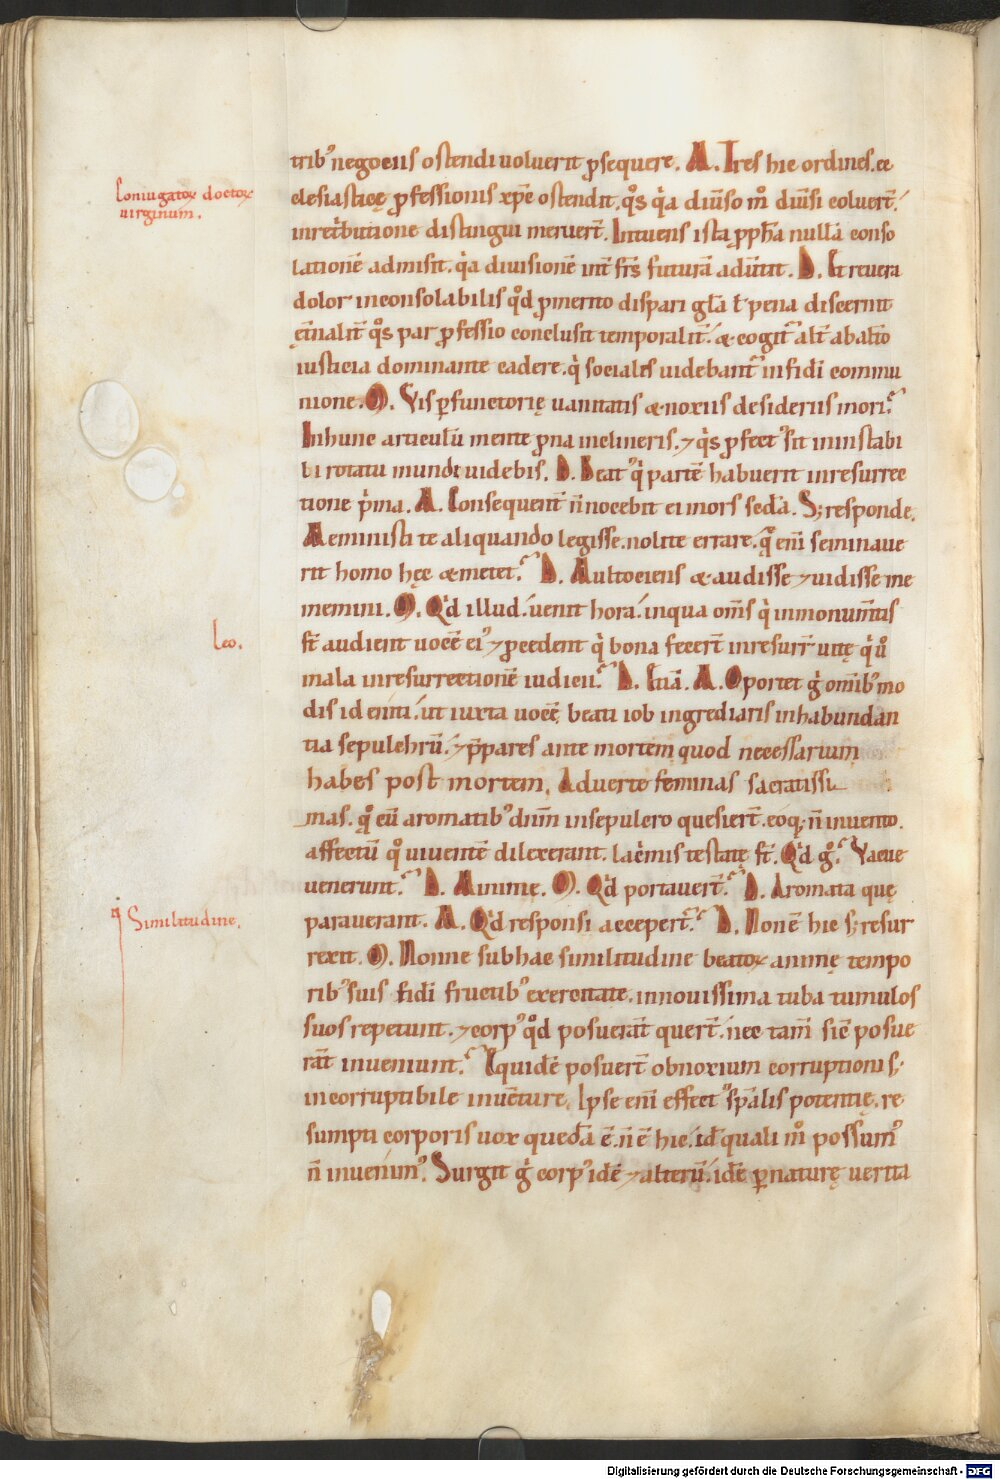 Coniugatoꝝ doctoꝝ
uirginum.
trib᾿ negociis ostendi uoluerit ꝓsequere. A. Tres hic ordines. ec
clesiasticę ꝓfessionis xpc̄ ostendit. qͦs qͥa diūso mͦ diuīsi coluert̄.
inret̓butione distingui meruer̄t. Intuens ista ꝓph̄a nullā conso
lationē admisit. qͥa diuisionē int̄ frs̄ futurā aduīt. D. Et reuera
dolor inconsolabilis qͦd ꝓmerito dispari gl̄a ł pena discernit
ęt̄nalit̄ qͦs par ꝓfessio conclusit temporalit̄. & cogit̄ alt̄ ab alt̄io
iusticia dominante cadere. qͥ sociales uidebant̄ in fidēi commu
nione. M. Vis ꝑfunctorię uanitatis & noxiis desideriis mori?
In hunc articulū mente ꝓna inclineris. ⁊ qͥs ꝓfect᾿ sit in instabi
bi rotatu mundi uidebis. D. Beat᾿ qͥ partē habuerit in resurrec
tione pͥma. A. Consequent̄ n̄ nocebit ei mors sec̄da. S; responde.
Reministi te aliquando legisse. nolite errare. qͦ eni᷑ seminaue
rit homo hęc & metet? D. Multociens & audisse ⁊ uidisse me
memini. M. Qͥd illud. uenit hora. in qua om̄s qͥ in monum̄tis
st̄ audient uocē ei᾿ ⁊ ꝓcedent qͥ bona fecer̄t in resurr̄ uitę qͥ ū
mala in resurrectionē iudicii? D. Etiā. A. Oportet gͥ omīb᾿ mo
dis id eniti. ut iuxta uocē beati iob ingrediaris in habundan
tia sepulchrū. ⁊ p̄pares ante mortem quod necessarium
habes post mortem. Aduerte feminas sacratissi
mas. qͦ cū aromatib᾿ dn̄m in sepulcro quesiert̄. eoq; n̄ inuento.
affectū qͦ uiuentē dilexerant. lac̓mis testatę st̄. Qͥd gͦ? Vacue
uenerunt? D. Minime. M. Qͥd portauert̄? D. Aromata quę
parauerant. A. Qͥd responsi accepert̄? D. Non ē hic s; resur
rexit. M. Nonne sub hac similitudine beatoꝝ animę tempo
rib᾿ suis fidēi fructib᾿ exercitatę. in nouissima tuba tumulos
suos repetunt. ⁊ corp᾿ qͦd posuerāt quert̄. nec tam̄ sic̄ posue
rāt inueniunt? Equidē posuert̄ obnoxium corruptioni s;
incorruptibile inuēture. Ipse eni᷑ effect᾿ sp̄alis potentię. re
sumpti corporis uox quedā ē. n̄ ē hic. id̄ quali mͦ possum᾿
n̄ inuenim᾿. Surgit gͥ corp᾿ idē ⁊ alterū. idē ꝑ naturę uerita
Leo.
Similitudine.
Digitalisierung gefördert durch die Deutsche Forschungsgemeinschaft - DFG